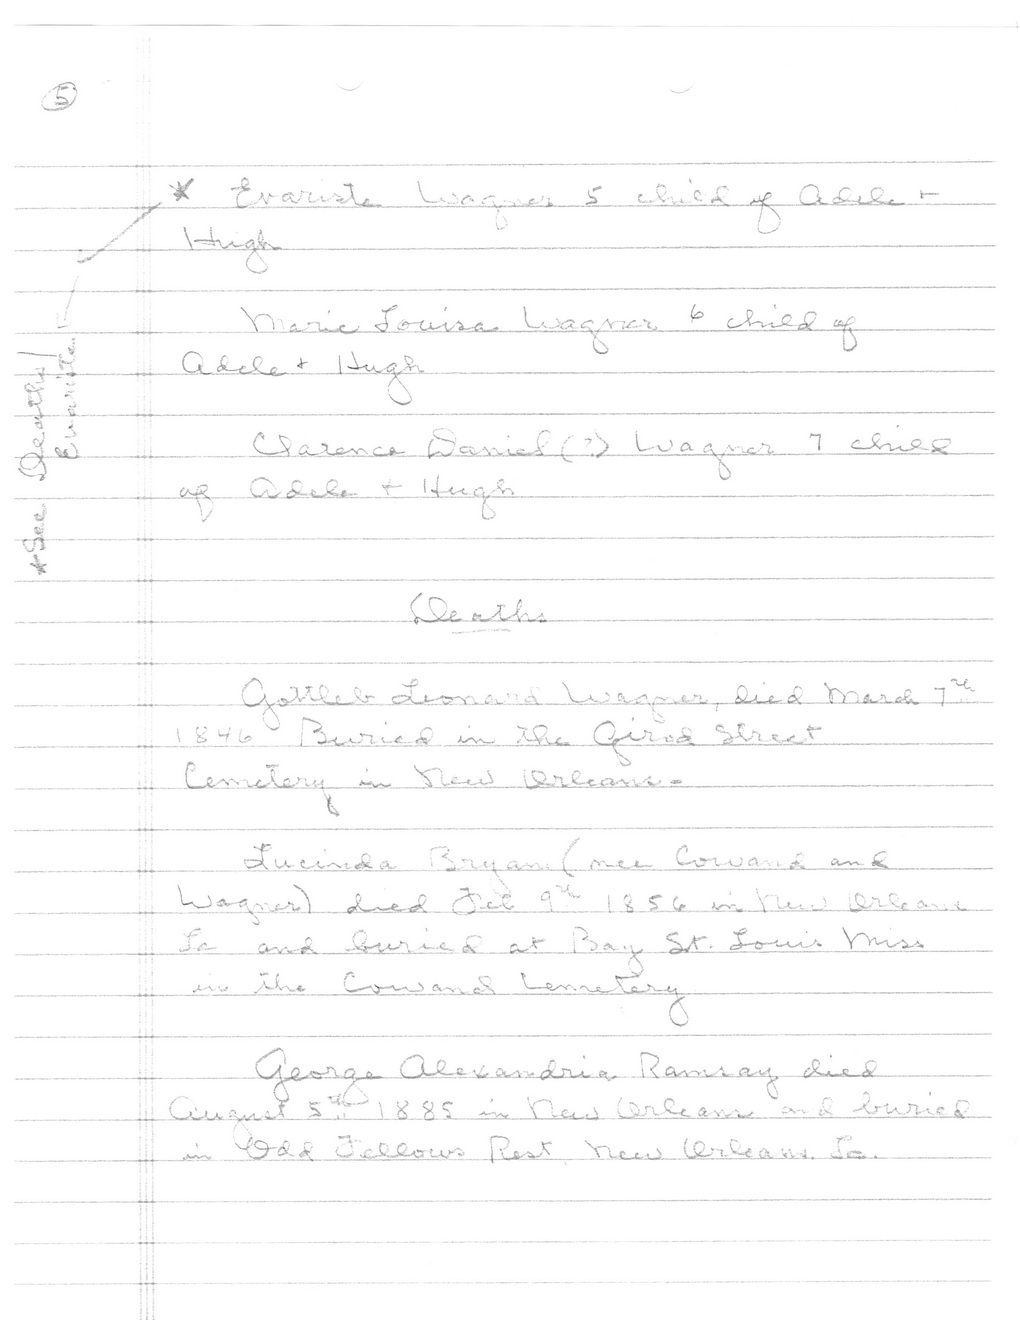 5
* Evariste Wagner 5 child of Adele +
Hugh
Marie Louisa Wagner 6 child of
Adele + Hugh
Clarence Daniel (?) Wagner 7 child
of Adele + Hugh
*See Deaths/
Evariste
Deaths
Gottleb Leonard Wagner, died March 7th
1846 Buried in the Girod Street
Cemetery in New Orleans-
Lucinda Bryan (nee Cowand and
Wagner) died Feb 9th 1856 in New Orleans
La and buried at Bay St. Louis Miss
in the Cowand Cemetery
George Alexandria Ramsay died
August 5th 1885 in New Orleans and buried
in Odd Fellows Rest, New Orleans. La.